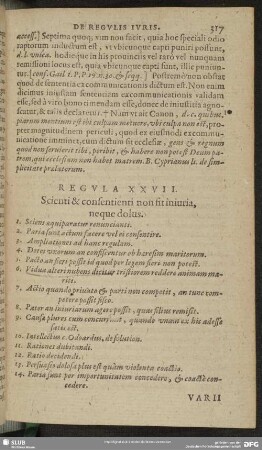 DE REGVLIS IVRIS. 317
access.] Septima quoq; vim non facit, quia hoc speciali odio
raptorum inductum est, vt vbicunque capti puniri possint,
d. l. vnica. hodieque in his prouincijs vel raro vel nunquam
remissioni locus est, quia vbicunque capti sunt, illic puniun-
Postremò non obstat
quod de sententia excommunicationis dictum est. Non enim
dicimus iniustam sententiam excommunicationis validam
esse, sed à viro bono timendam esse, donec de iniustitia agno-
scatur, & talis declaretur. † Nam vt ait Canon,
parem mortuum est ibi cultum metuere, vbi culpa non est, pro-
pter magnitudinem periculi, quod ex eiusmodi excommu-
nicatione imminet, cùm dictum sit ecclesiæ, gens & regnum
quod non seruierit tibi, peribit, & habere non potest Deum pa-
trem, qui ecclesiam non habet matrem. B. Cyprianus li. de sim-
plicitate prælatorum.
REGVLA XXVII.
Scienti & consentienti non fit iniuria,
neque dolus.
1. Sciens æquiparatur renuncianti.
2. Paria sunt actum facere vel ei consentire.
3. Ampliationes ad hanc regulam.
4. Dotes vxorum an confiscentur ob hæresim maritorum.
5. Pacto an fieri possit id quod per legem fieri non potest.
6. Vidua alteri nubens dicitur tristiorem reddere animam ma-
riti.
7. Actio quando priuato & parti non competit, an tunc com-
petere possit fisco.
8. Pater an iniuriarum agere possit, quas filius remisit.
9. Causæ plures cum concur... quando vnam ex his adesse
satis est.
10. Intellectus c. Odoardus, de solution.
11. Rationes dubitandi.
12. Ratio decidendi.
13. Persuasio dolosa plus est quàm violenta coactio.
14. Paria sunt per importunitatem concedere, & coactè con-
cedere.
VARII
SLUB
DFG